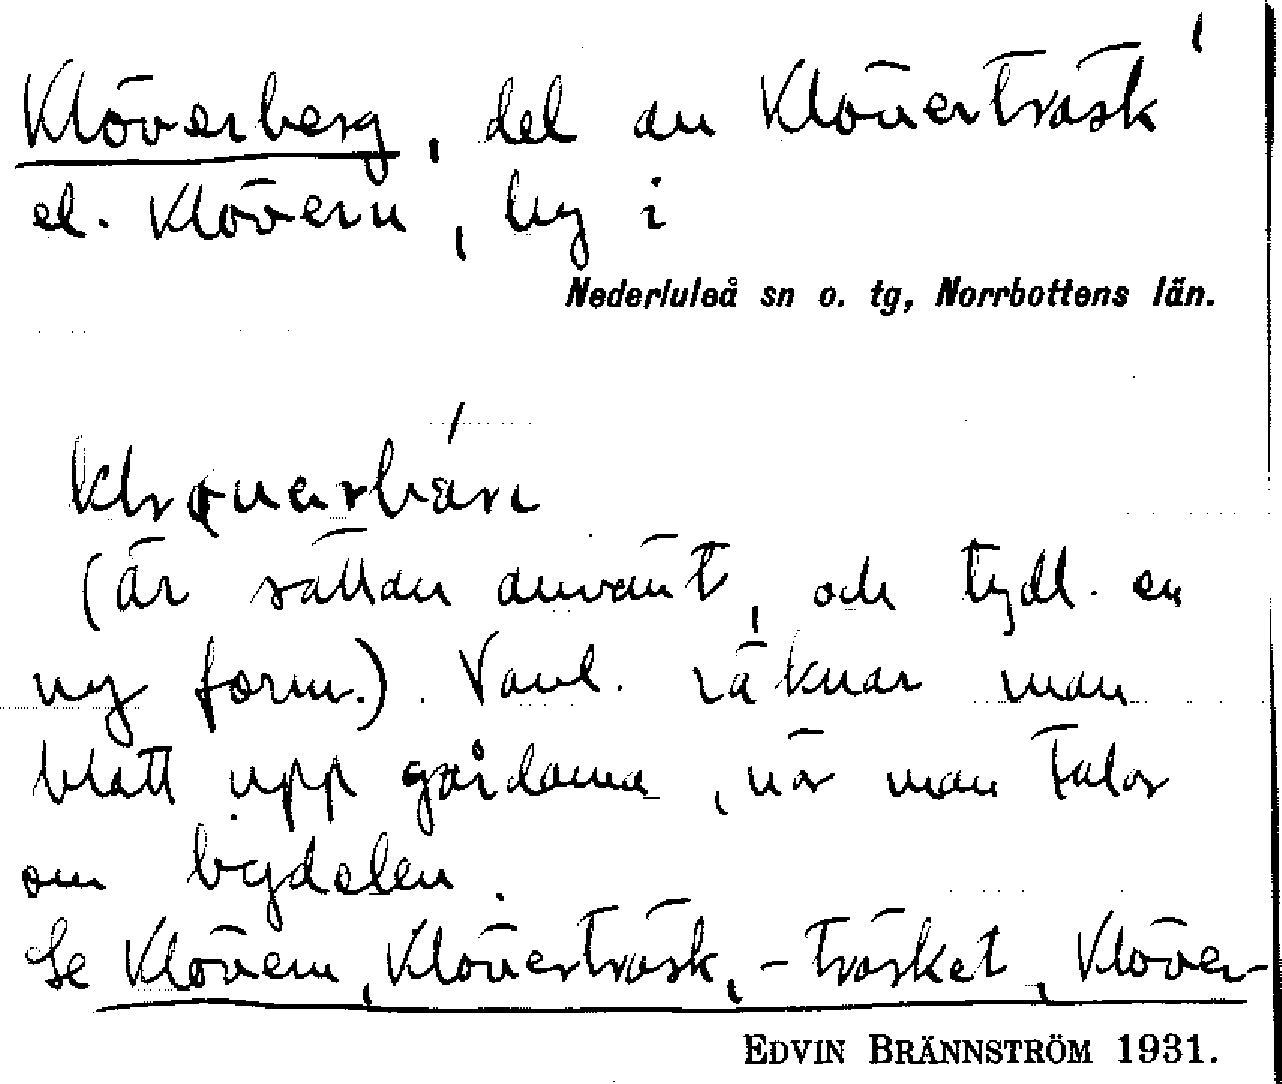 Klöverberg, del av Klöverträsk
el. Klövern, by i
Nederluleå sn o. tg, Norrbottens län.
(är sällan använt, och tydl. en
ny form.). Vanl. räknar man
blott upp gårdarna, när man talar
om bydelen.
Se Klövern, Klöverträsk, -träsket, Klöver-
EDVIN BRÄNNSTRÖM 1931.